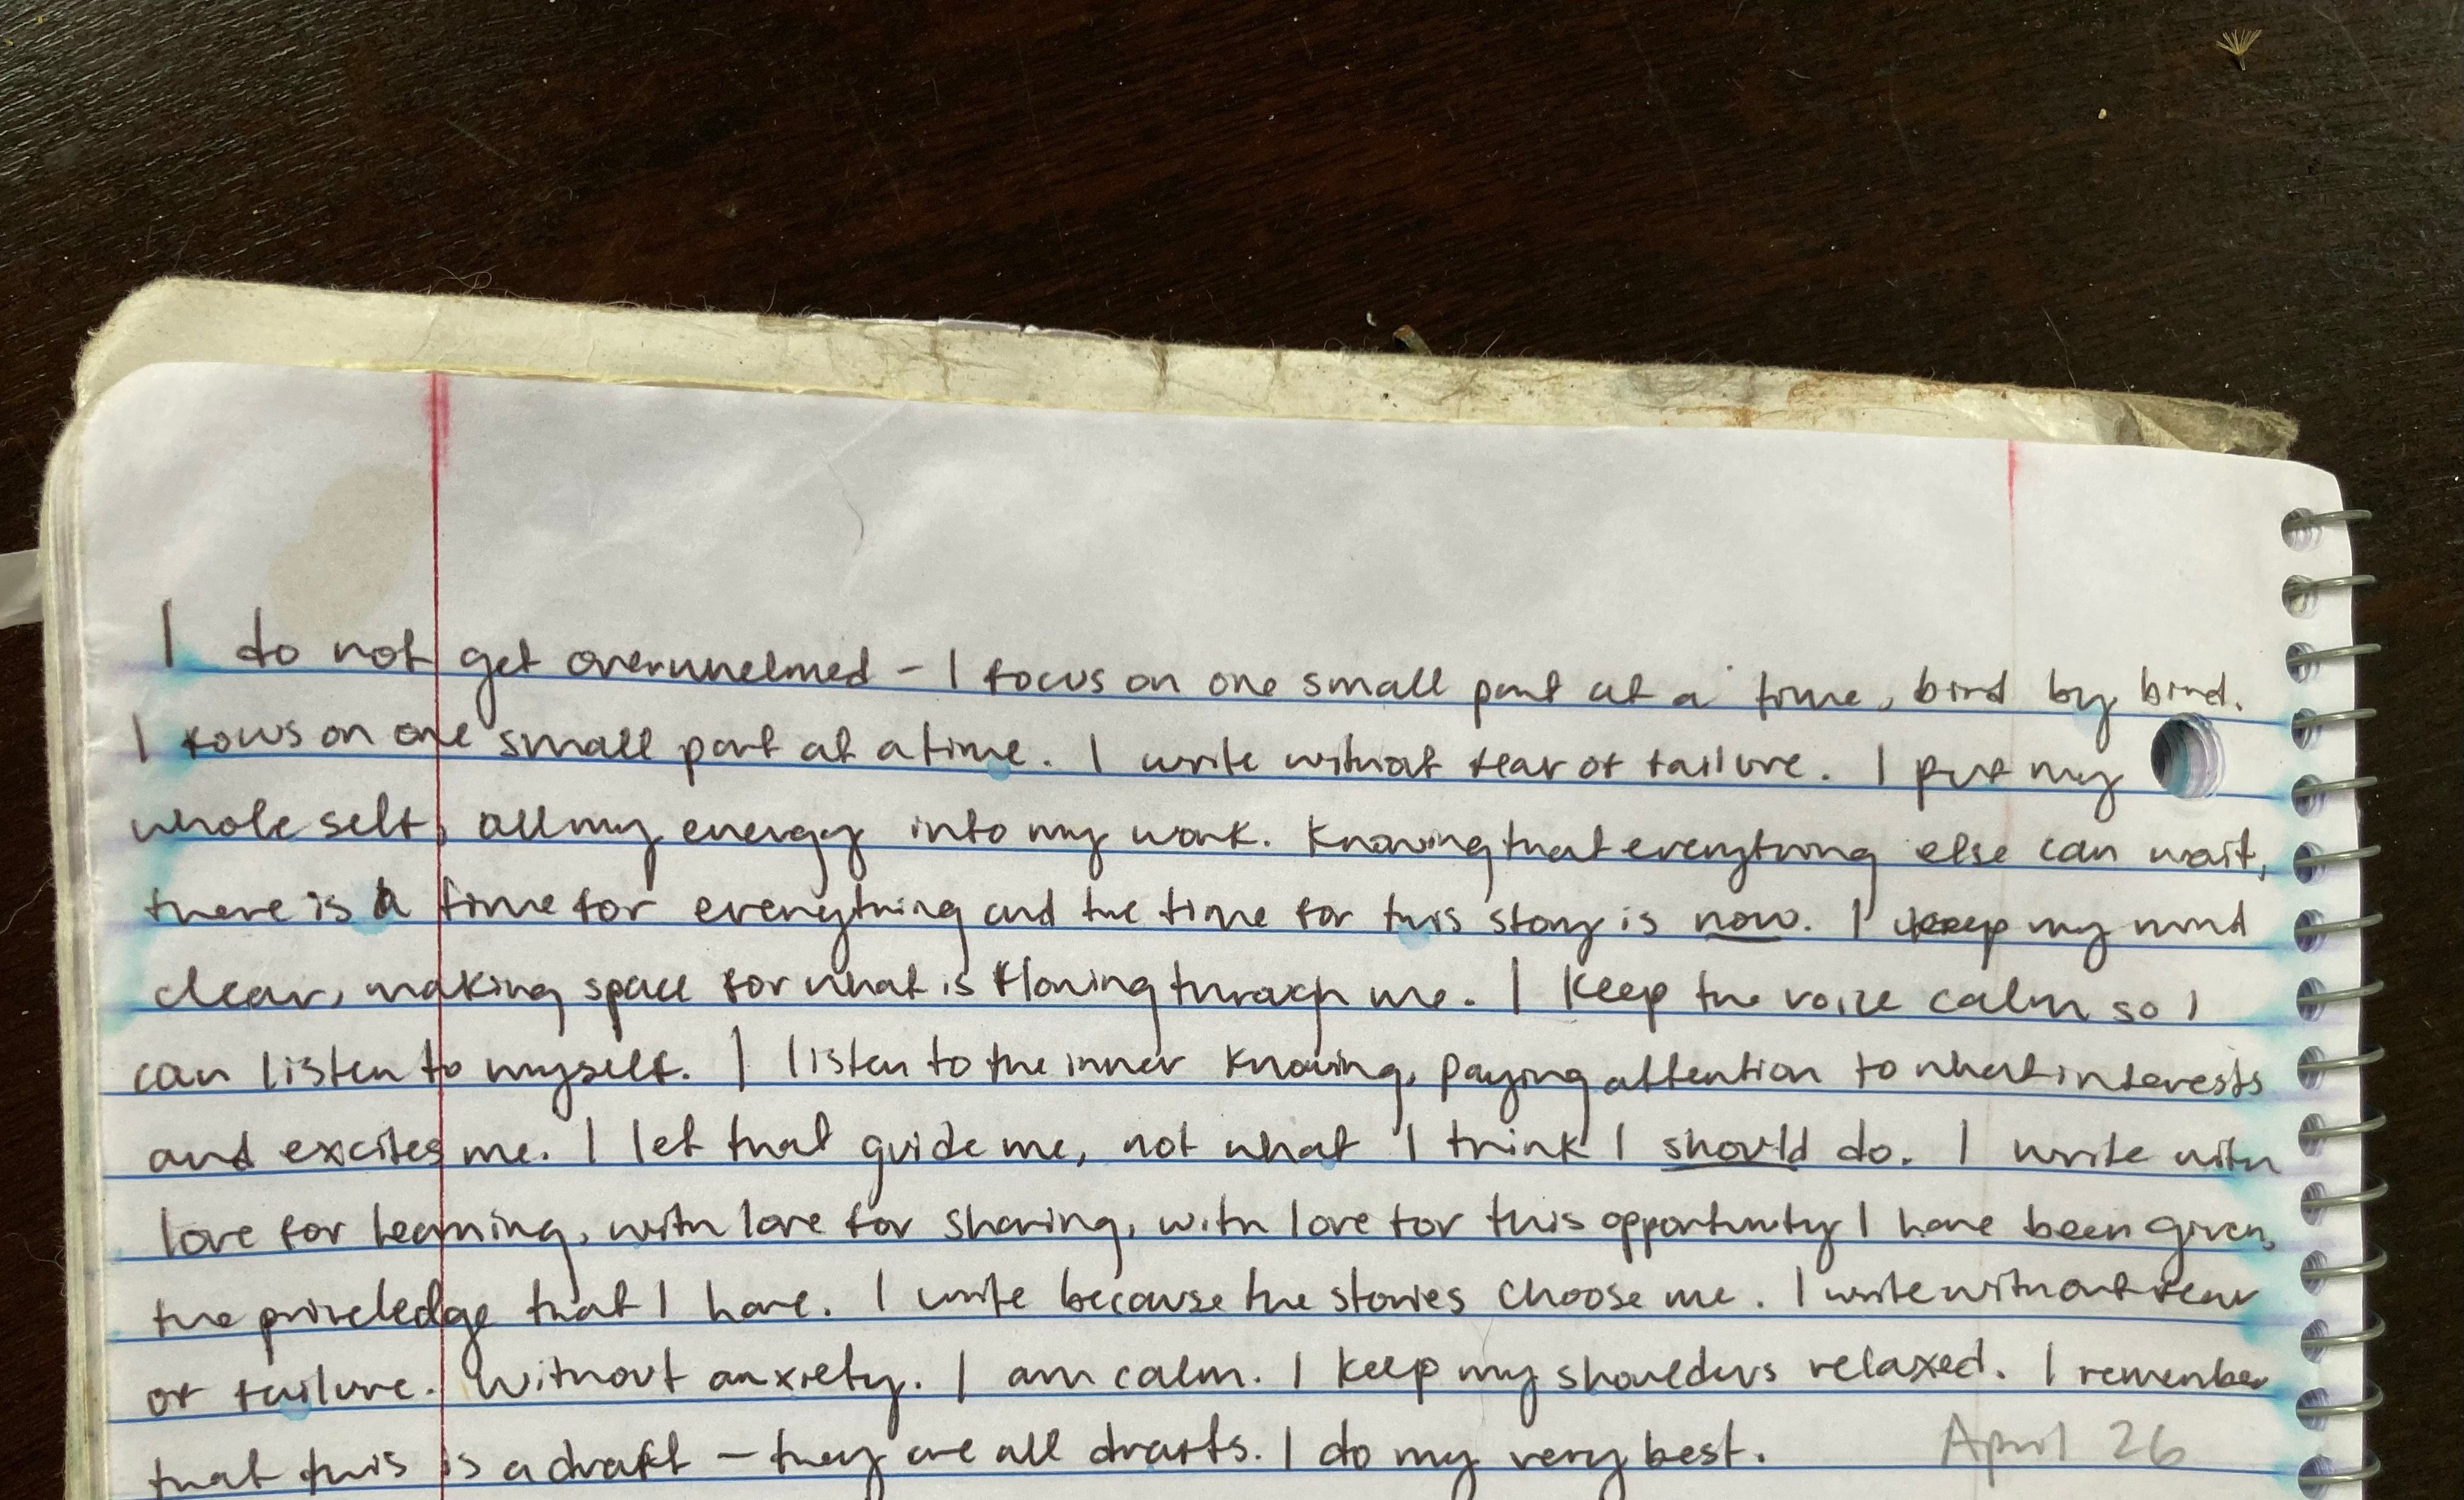 I do not get overwhelmed – I focus on one small part at a time, bird by bird.
I focus on one small part at a time. I write without fear of failure. I put my
whole self, all my energy into my work. Knowing that everything else can wait,
there is a time for everything and the time for this story is now. I keep my mind
clear, making space for what is flowing through me. I keep the voice calm so I
can listen to myself. I listen to the inner knowing, paying attention to what interests
and excites me. I let that guide me, not what I think I should do. I write with
love for learning, with love for sharing, with love for this opportunity I have been given,
the priveledge that I have. I write because the stories choose me. I write without fear
of failure. Without anxiety. I am calm. I keep my shoulders relaxed. I remember
that this is a draft – they are all drafts. I do my very best. April 26